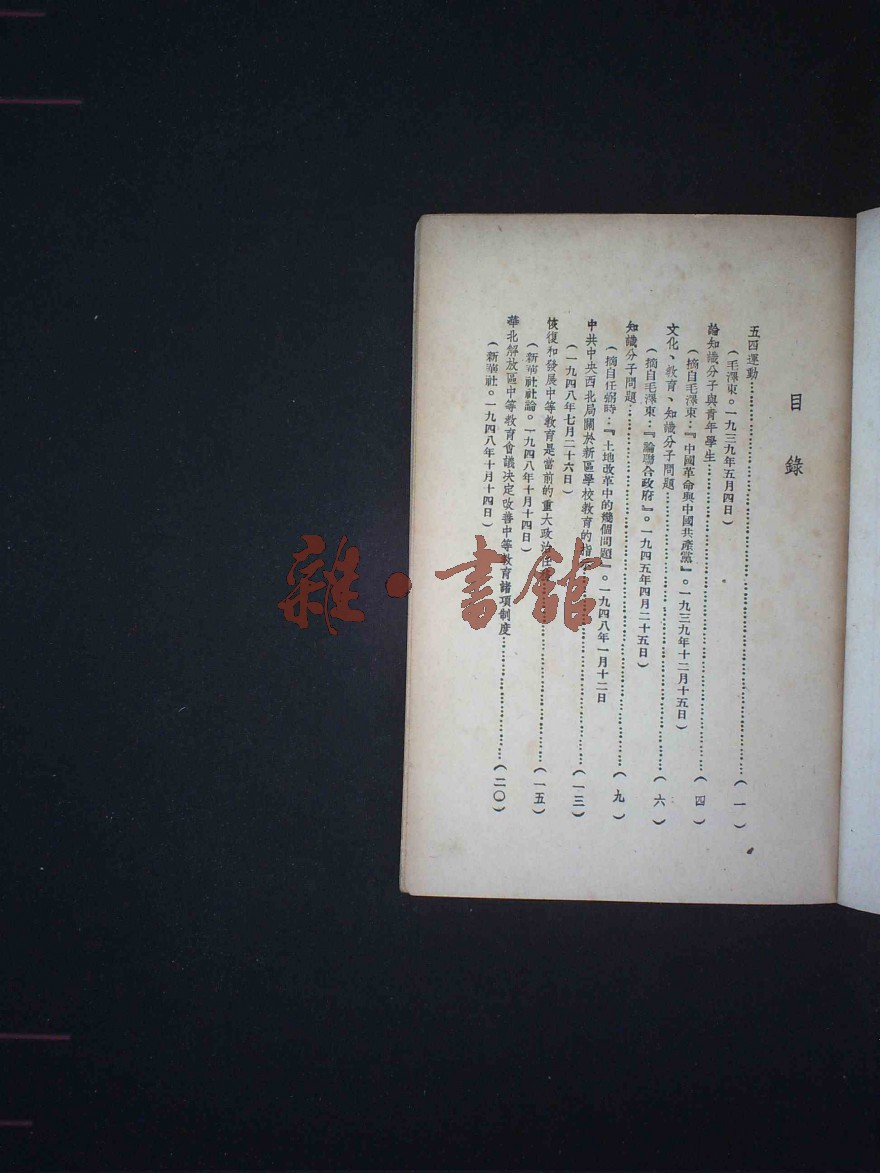 目錄
五四運動……(一)
(毛澤東。一九三九年五月四日)
論知識分子與青年學生……(四)
(摘自毛澤東：『中國革命與中國共產黨』。一九三九年十二月十五日)
文化、教育、知識分子問題……(六)
(摘自毛澤東：『論聯合政府』。一九四五年四月二十五日)
知識分子問題……(九)
(摘自任弼時：『土地改革中的幾個問題』。一九四八年一月十二日
中共中央西北局關於新區學校教育的指……(一三)
(一九四八年七月二十六日)
恢復和發展中等教育是當前的重大政治任……(一五)
(新華社社論。一九四八年十月十四日)
華北解放區中等教育會議決定改善中等教育諸項制度……(二〇)
(新華社。一九四八年十月十四日)
雜·書館